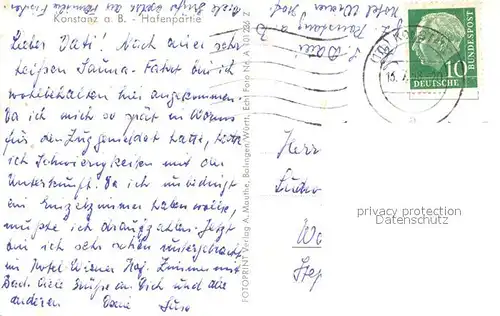 Konstanz a. B. - Hafenpartie
Lieber Vati! Nach einer sehr
heißen Sauna-Fahrt bin ich
wohlbehalten hier angekommen.
Da ich mich so spät in Worms
für den Zug gemeldet hatte, hatte
ich Schwierigkeiten mit der
Unterkunft. Da ich unbedingt
ein Einzelzimmer haben wollte,
mußte ich draufzahlen. Jetzt
bin ich sehr schön untergebracht
im Hotel Wiener Hof. Zimmer mit
Bad. Viele Grüße an Dich und die
anderen Deine
FOTOPRINT Verlag A. Mauthe, Balingen/Württ. Echt Foto Nr. A
Konstanz a. B
Hotel Wiener Hof
DEUTSCHE BUNDESPOST
10
Herr
privacy protection
Datenschutz